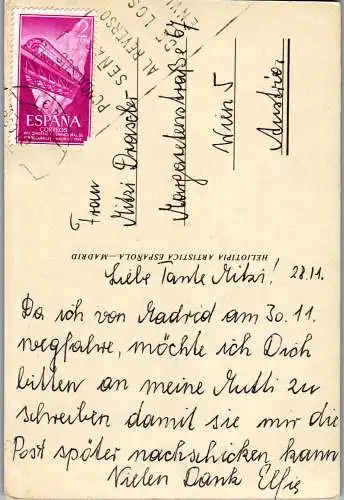 2
ESPAÑA
CORREOS
PONGA
SEÑAS
AL REVERSO
DE LOS
ENVIOS
Frau
Mitzi Drascler
Margaretenstraße 67
Wien 5
Austria
HELIOTIPIA ARTISTICA ESPAÑOLA.—MADRID
Liebe Tante Mitzi! 28.11.
Da ich von Madrid am 30.11.
wegfahre, möchte ich Dich
bitten an meine Mutti zu
schreiben damit sie mir die
Post später nachschicken kann
Vielen Dank Elfie